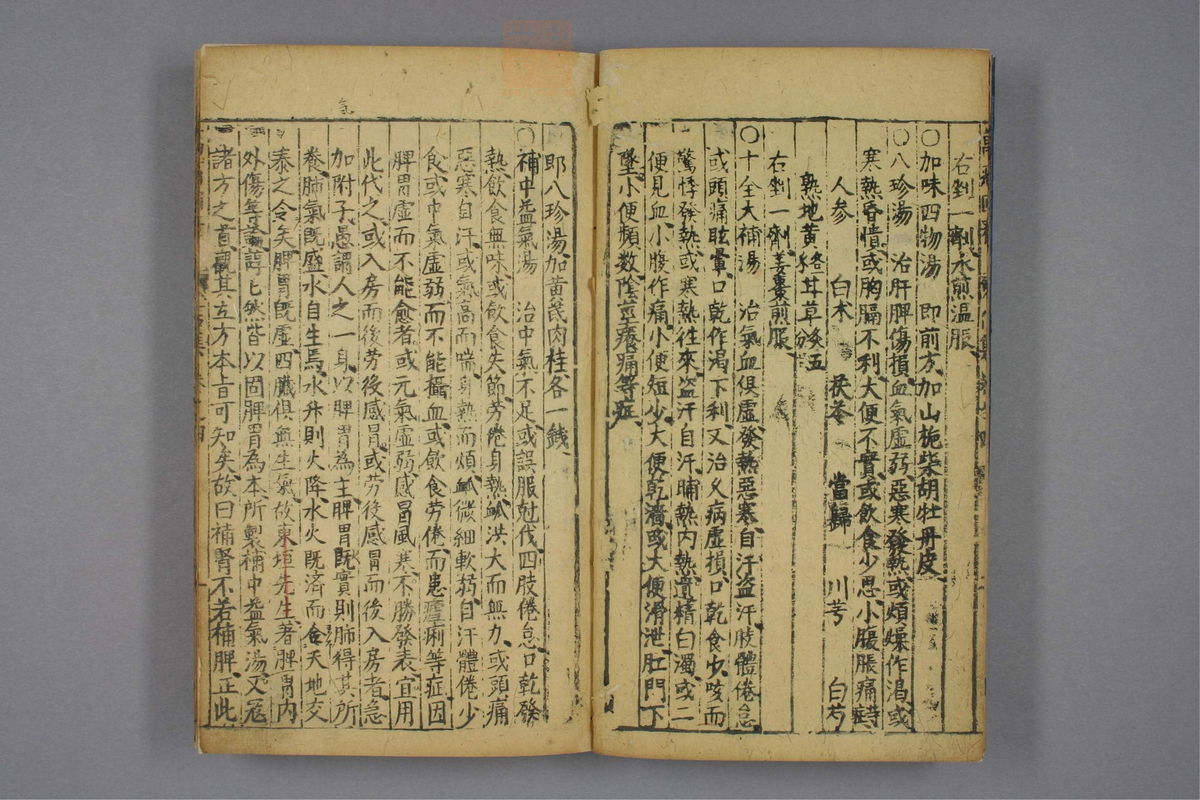 右剉一劑水煎温服
〇加味四物湯　即前方加山梔柴胡牡丹皮
〇八珍湯　治肝脾傷損血氣虚弱惡寒發熱或煩燥作渴或
寒熱昏憒或胸膈不利大便不實或飲食少思小腹脹痛
人參　白朮　茯苓　當歸　川芎　白芍
熟地黄各　甘草炙五分
右剉一劑姜棗煎服
〇十全大補湯　治氣血俱虚發熱惡寒自汗盗汗肢體倦怠
或頭痛眩暈口乾作渴下利又治久病虚損口乾食少咳而
驚悸發熱或寒熱往來盗汗自汗晡熱内熱遺精白濁或二
便見血小腹作痛小便短少大便乾濇或大便滑泄肛門下
墜小便頻數陰莖痛等症
即八珍湯加黄芪肉桂各一錢
〇補中益氣湯　治中氣不足或誤服尅伐四肢倦怠口乾發
熱飲食無味或飲食失節勞倦身熱脉洪大而無力或頭痛
惡寒自汗或氣高而喘身熱而煩脉微細軟弱自汗體倦少
食或中氣虚弱而不能攝血或飲食勞倦而患瘧痢等症因
脾胃虚而不能愈者或元氣虚弱感冒風寒不勝發表宜用
此代之或入房而後勞後感冒或勞後感冒而後入房者急
加附子愚謂人之一身以脾胃為主脾胃既實則肺得其所
養肺氣既盛水自生焉水升則火降水火既済而合天地交
泰之令矣脾胃既虚四臟俱無生氣故東垣先生著脾胃内
外傷等論諄匕然皆以固脾胃為本所製補中益氣湯又冠
諸方之首觀其立方本旨可知矣故曰補腎不若補脾正此